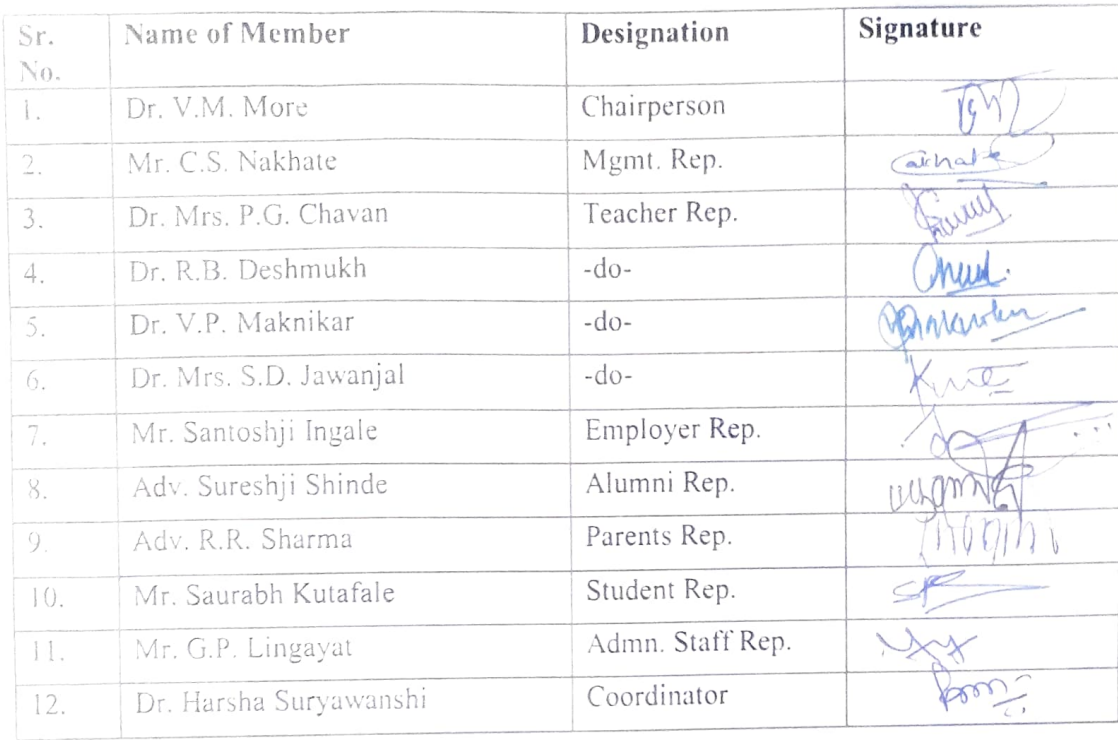 Sr. No. Name of Member Designation Signature
1. Dr. V.M. More Chairperson
2. Mr. C.S. Nakhate Mgmt. Rep.
3. Dr. Mrs. P.G. Chavan Teacher Rep.
4. Dr. R.B. Deshmukh -do-
5. Dr. V.P. Maknikar -do-
6. Dr. Mrs. S.D. Jawanjal -do-
7. Mr. Santoshji Ingale Employer Rep.
8. Adv. Sureshji Shinde Alumni Rep.
9. Adv. R.R. Sharma Parents Rep.
10. Mr. Saurabh Kutafale Student Rep.
11. Mr. G.P. Lingayat Admn. Staff Rep.
12. Dr. Harsha Suryawanshi Coordinator